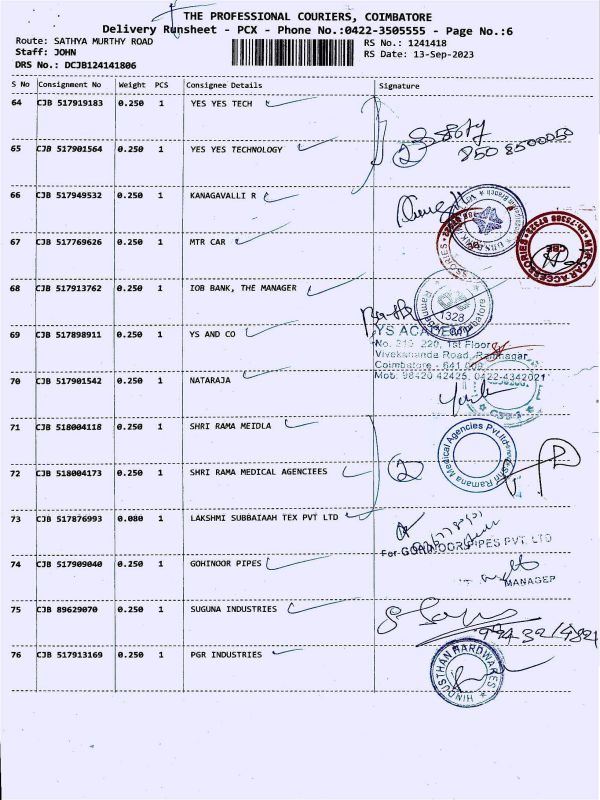 THE PROFESSIONAL COURIERS, COIMBATORE
Delivery Runsheet - PCX - Phone No.:0422-3505555 - Page No.:6
Route: SATHYA MURTHY ROAD
Staff: JOHN
DRS No.: DCJB124141806
RS No.: 1241418
RS Date: 13-Sep-2023
S No Consignment No Weight PCS Consignee Details Signature
64 CJB 517919183 0.250 1 YES YES TECH
65 CJB 517901564 0.250 1 YES YES TECHNOLOGY
2
850 8500050
66 CJB 517949532 0.250 1 KANAGAVALLI R
67 CJB 517769626 0.250 1 MTR CAR
MTR CAR ACCESSORIES
CBE
68 CJB 517913762 0.250 1 IOB BANK, THE MANAGER
1328
69 CJB 517898911 0.250 1 YS AND CO
YS ACADEMY
No. 219, 220, 1st Floor
Vivekananda Road, Ramnagar,
Coimbatore - 641 009
Mob: 98420 42425, 0422-4342021
70 CJB 517901542 0.250 1 NATARAJA
71 CJB 518004118 0.250 1 SHRI RAMA MEIDLA
Shri Ramana Medical Agencies Pvt.Ltd
72 CJB 518004173 0.250 1 SHRI RAMA MEDICAL AGENCIEES
2
73 CJB 517876993 0.080 1 LAKSHMI SUBBAIAAH TEX PVT LTD
For GOHINOOR PIPES PVT. LTD
74 CJB 517909040 0.250 1 GOHINOOR PIPES
MANAGER
75 CJB 89629070 0.250 1 SUGUNA INDUSTRIES
76 CJB 517913169 0.250 1 PGR INDUSTRIES
HINDUSTHAN HARDWARES